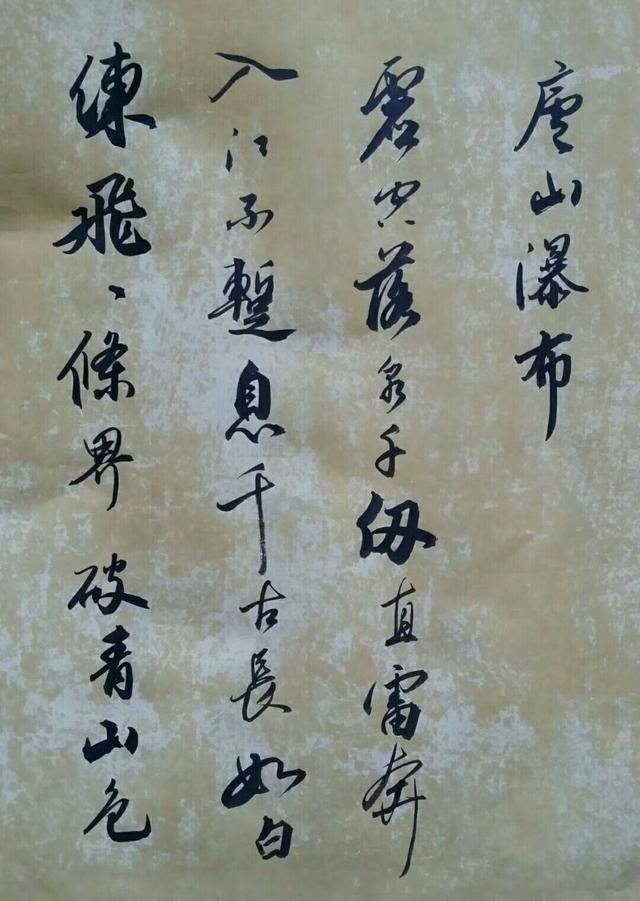 廬山瀑布
虛空落泉千仭直雷奔
入江不暫息千古長如白
練飛一條界破青山色